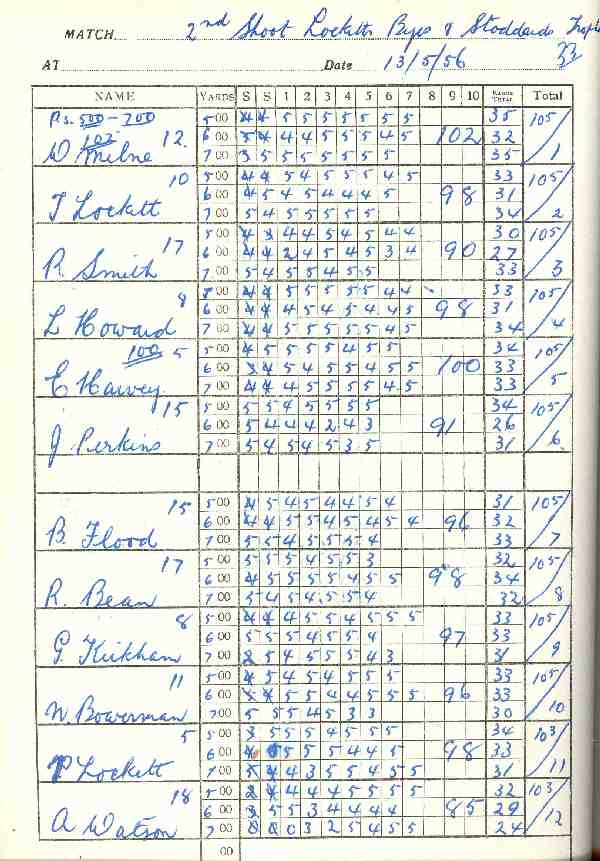 MATCH 2nd Shoot Locketts Byes & Stoddards
AT Date 13/5/56 33
NAME YARDS S S 1 2 3 4 5 6 7 8 9 10 Total
Rs. 500 - 700 500 4 4 5 5 5 5 5 5 5 35 105/1
102 12. 600 4 4 5 5 5 4 5 102 32
W Milne 700 3 5 5 5 5 5 5 5 35
10 500 4 4 5 4 5 5 5 4 5 33 105/2
T Lockett 600 4 5 4 5 4 4 4 5 98 31
700 5 4 5 5 5 5 5 34
17 500 4 3 4 4 5 4 5 4 4 30 105/3
R. Smith 600 4 4 2 4 5 4 5 3 4 90 27
700 5 4 5 5 4 5 5 33
8 500 4 4 5 5 5 5 5 4 4 33 105/4
L Howard 600 4 4 4 5 4 5 4 4 5 98 31
700 4 4 5 5 5 5 5 4 5 34
100 5 500 4 5 5 5 5 4 5 5 34 105/5
C Harvey 600 3 4 5 4 5 5 4 5 5 100 33
700 4 4 4 5 5 5 5 4 5 33
15 500 5 5 4 5 5 5 5 34 105/6
J Perkins 600 5 4 4 4 2 4 3 91 26
700 5 4 5 4 5 3 5 31
15 500 4 5 4 5 4 4 5 4 31 105/7
B. Flood 600 4 4 5 5 4 5 4 5 4 96 32
700 5 5 4 5 5 5 4 33
17 500 5 5 5 4 5 5 3 32 105/8
R. Bean 600 4 5 5 5 5 4 5 5 98 34
700 5 4 5 4 5 5 4 32
8 500 4 4 4 5 5 4 5 5 5 33 105/9
G. Kirkham 600 5 5 5 4 5 5 4 97 33
700 2 5 4 5 5 5 4 3 31
11 500 4 5 4 5 4 5 5 5 33 105/10
W. Bowerman 600 5 5 4 4 5 5 5 96 33
700 5 5 5 4 5 3 3 30
5 500 3 5 5 5 4 5 5 5 34 103/11
P Lockett 600 5 5 5 4 4 5 98 33
700 4 3 5 5 4 5 5 31
18 500 2 4 4 4 5 5 5 5 32 103/12
A Watson 600 3 5 5 3 4 4 4 4 85 29
700 0 0 0 3 2 5 4 5 5 24
00